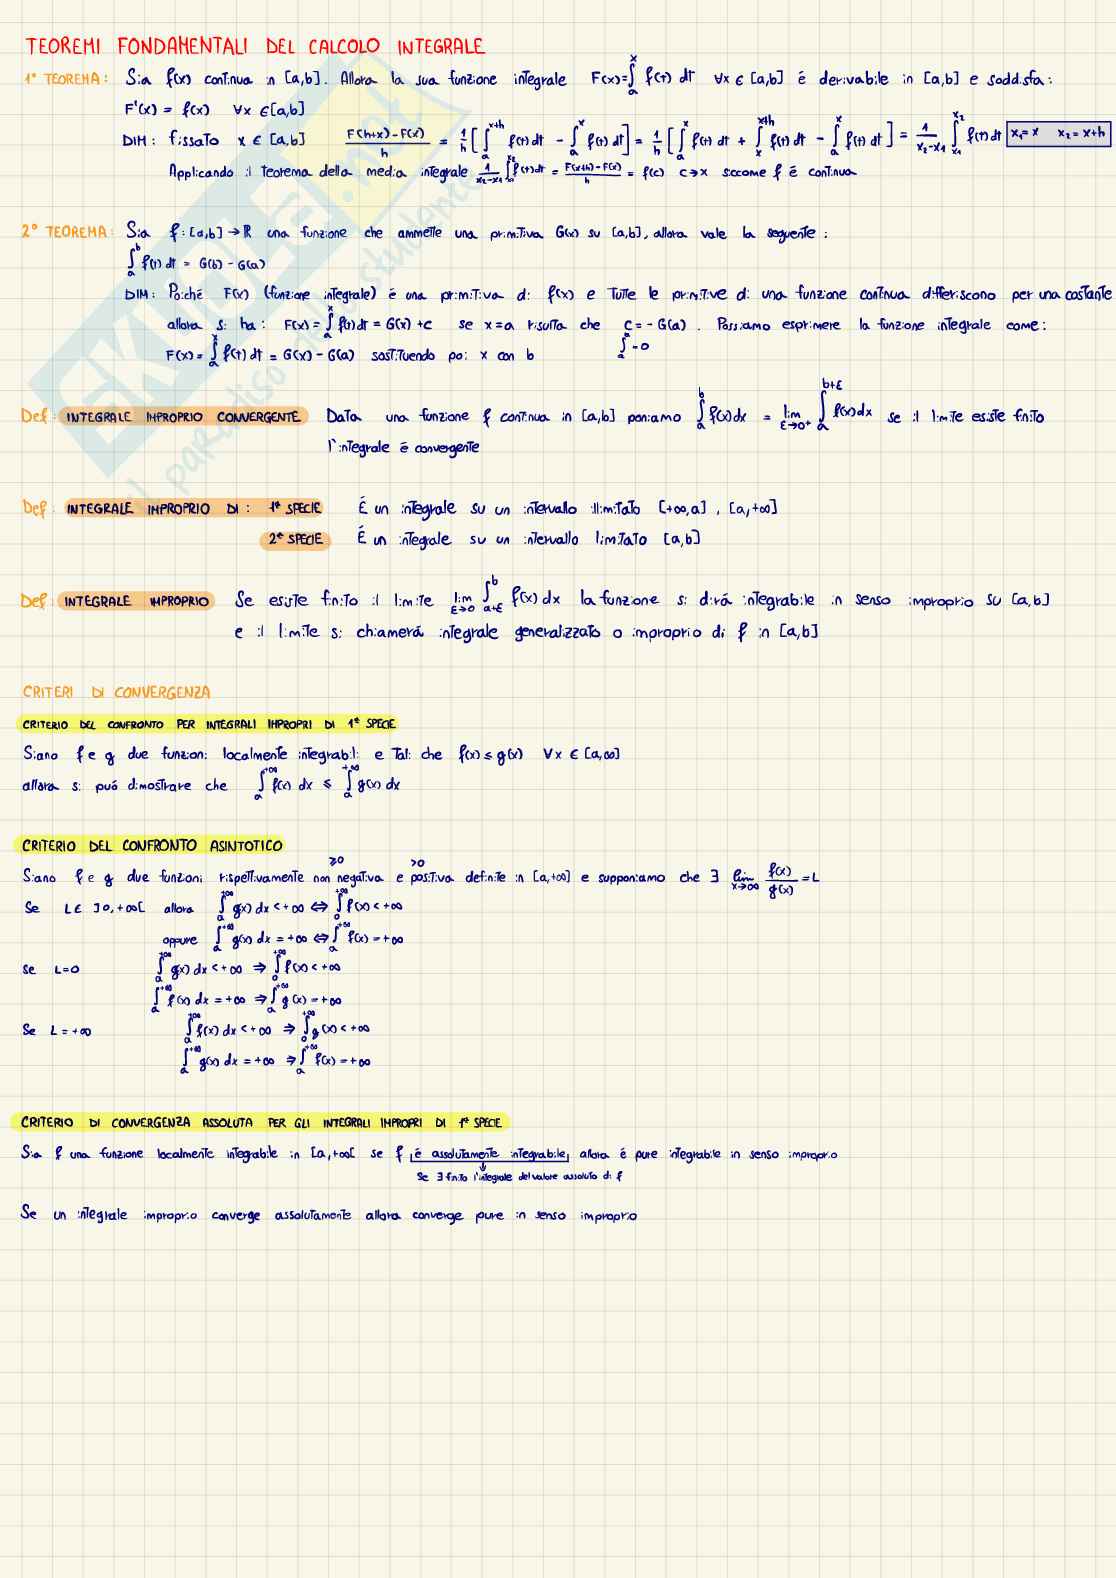 TEOREMI FONDAMENTALI DEL CALCOLO INTEGRALE
1° TEOREMA: Sia f(x) continua in [a,b]. Allora la sua funzione integrale F(x)=∫ₐˣ f(t) dt ∀x ∈ [a,b] é derivabile in [a,b] e soddisfa:
F'(x) = f(x) ∀x ∈[a,b]
DIM: fissato x ∈ [a,b] (F(h+x)-F(x))/h = 1/h [∫ₐˣ⁺ʰ f(t) dt - ∫ₐˣ f(t) dt] = 1/h [∫ₐˣ f(t) dt + ∫ₓˣ⁺ʰ f(t) dt - ∫ₐˣ f(t) dt] = 1/(x₂-x₁) ∫ₓ₁ˣ² f(t) dt x₁= x x₂ = x+h
Applicando il teorema della media integrale 1/(x₂-x₁) ∫ₓ₁ˣ² f(t) dt = (F(x+h)-F(x))/h = f(c) c→x siccome f é continua
2° TEOREMA: Sia f:[a,b] → ℝ una funzione che ammette una primitiva G(x) su [a,b], allora vale la seguente:
∫ₐᵇ f(t) dt = G(b) - G(a)
DIM: Poiché F(x) (funzione integrale) é una primitiva di f(x) e tutte le primitive di una funzione continua differiscono per una costante
allora si ha: F(x) = ∫ₐˣ f(t) dt = G(x) + c se x=a risulta che c = - G(a). Possiamo esprimere la funzione integrale come:
F(x) = ∫ₐˣ f(t) dt = G(x) - G(a) sostituendo poi x con b ∫ₐᵃ = 0
Def: INTEGRALE IMPROPRIO CONVERGENTE Data una funzione f continua in [a,b] poniamo ∫ₐᵇ f(x) dx = lim ε→0⁺ ∫ₐᵇ⁺ᵋ f(x) dx se il limite esiste finito
l'integrale é convergente
Def: INTEGRALE IMPROPRIO DI: 1ª SPECIE É un integrale su un intervallo illimitato [+∞,a], [a,+∞]
2ª SPECIE É un integrale su un intervallo limitato [a,b]
Def: INTEGRALE IMPROPRIO Se esiste finito il limite lim ε→0 ∫ₐ₊ᵋᵇ f(x) dx la funzione si dirá integrabile in senso improprio su [a,b]
e il limite si chiamerá integrale generalizzato o improprio di f in [a,b]
CRITERI DI CONVERGENZA
CRITERIO DEL CONFRONTO PER INTEGRALI IMPROPRI DI 1ª SPECIE
Siano f e g due funzioni localmente integrabili e tali che f(x) ≤ g(x) ∀x ∈ [a,∞]
allora si puó dimostrare che ∫ₐ⁺∞ f(x) dx ≤ ∫ₐ⁺∞ g(x) dx
CRITERIO DEL CONFRONTO ASINTOTICO
≥0 >0
Siano f e g due funzioni rispettivamente non negativa e positiva definite in [a,+∞] e supponiamo che ∃ lim x→∞ f(x)/g(x) = L
Se L∈ ]0,+∞[ allora ∫ₐ⁺∞ g(x) dx < +∞ ⇔ ∫₀⁺∞ f(x) < +∞
oppure ∫ₐ⁺∞ g(x) dx = +∞ ⇔ ∫ₐ⁺∞ f(x) = +∞
Se L=0 ∫ₐ⁺∞ g(x) dx < +∞ ⇒ ∫₀⁺∞ f(x) < +∞
∫ₐ⁺∞ f(x) dx = +∞ ⇒ ∫ₐ⁺∞ g(x) = +∞
Se L = +∞ ∫ₐ⁺∞ f(x) dx < +∞ ⇒ ∫₀⁺∞ g(x) < +∞
∫ₐ⁺∞ g(x) dx = +∞ ⇒ ∫ₐ⁺∞ f(x) = +∞
CRITERIO DI CONVERGENZA ASSOLUTA PER GLI INTEGRALI IMPROPRI DI 1ª SPECIE
Sia f una funzione localmente integrabile in [a,+∞[ se f é assolutamente integrabile, allora é pure integrabile in senso improprio
Se ∃ finito l'integrale del valore assoluto di f
Se un integrale improprio converge assolutamente allora converge pure in senso improprio
SKUOLA.net
il paradiso dello studente